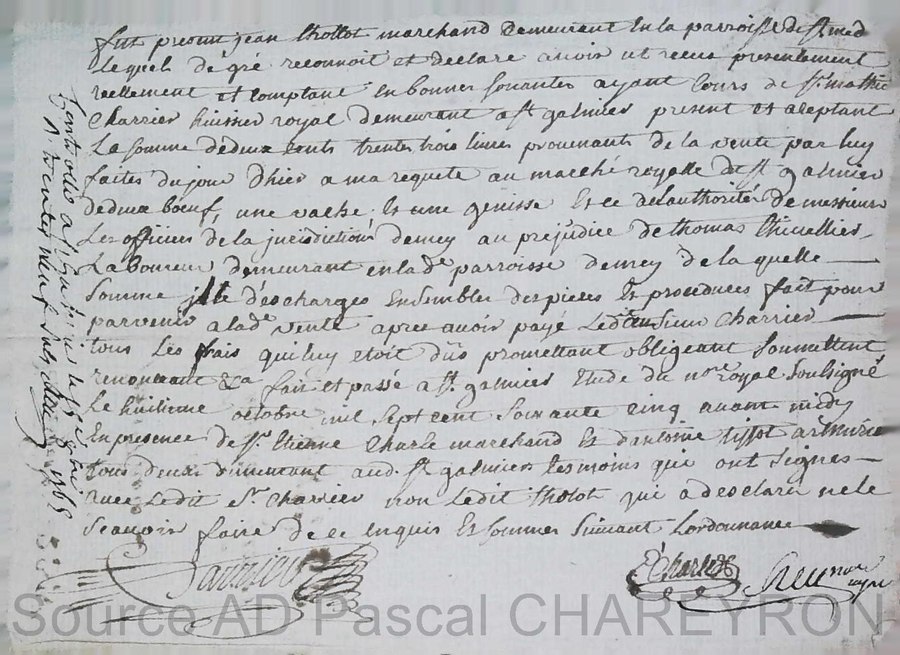 fut present jean thollot marchand demeurant en la parroisse de st med
lequel de gré reconnoit et declare avoir ut receu presentement
reellement et comptant en bonnes especes ayant cours de sr mathie
Charrier huissier royal demeurant a st galmier present et aceptant
La somme de deux cents trente trois livres provenants de la vente par luy
faites du jour d'hier a ma requete au marché royalle de st galmier
de deux bœuf, une vache, et une genisse et ce de l'authorité de messieurs
Les officiers de la jurisdiction de mey au prejudice de thomas
Laboureur demeurant en lade parroisse de mey de la quelle
Somme il le descharges ensembles des pieces et procedures fait pour
parvenir a lade vente apres avoir payé Ledit sieur Charrier
tous Les frais qui luy etoit düs promettant obligeant soumettent
renonceant &ca fait et passé a st galmier Etude du nore royal Soussigné
Le huitieme octobre mil sept cent soixante cinq avant midy
En presence de sr Etienne Charle marchand et d'antoine tissot armurie
tous deux demeurant aud. st galmier temoins qui ont signes
avec Ledit sr Charrier non Ledit tholot qui a desclaré ne le
sçavoir faire de ce enquis et sommes suivant Lordonnance
Controllé a st galmier le
R. trente neuf sols
Charrier
E Charle
nore royal
Source AD Pascal CHAREYRON